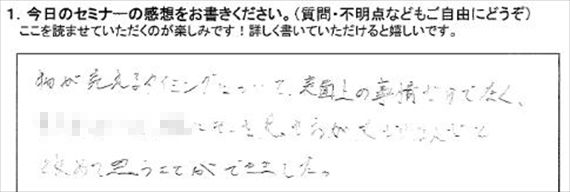 1. 今日のセミナーの感想をお書きください。(質問・不明点などもご自由にどうぞ)
ここを読ませていただくのが楽しみです！詳しく書いていただけると嬉しいです。
物が売えるタイミングについて、表面上の事情だけでなく、
改めて思うことができました。